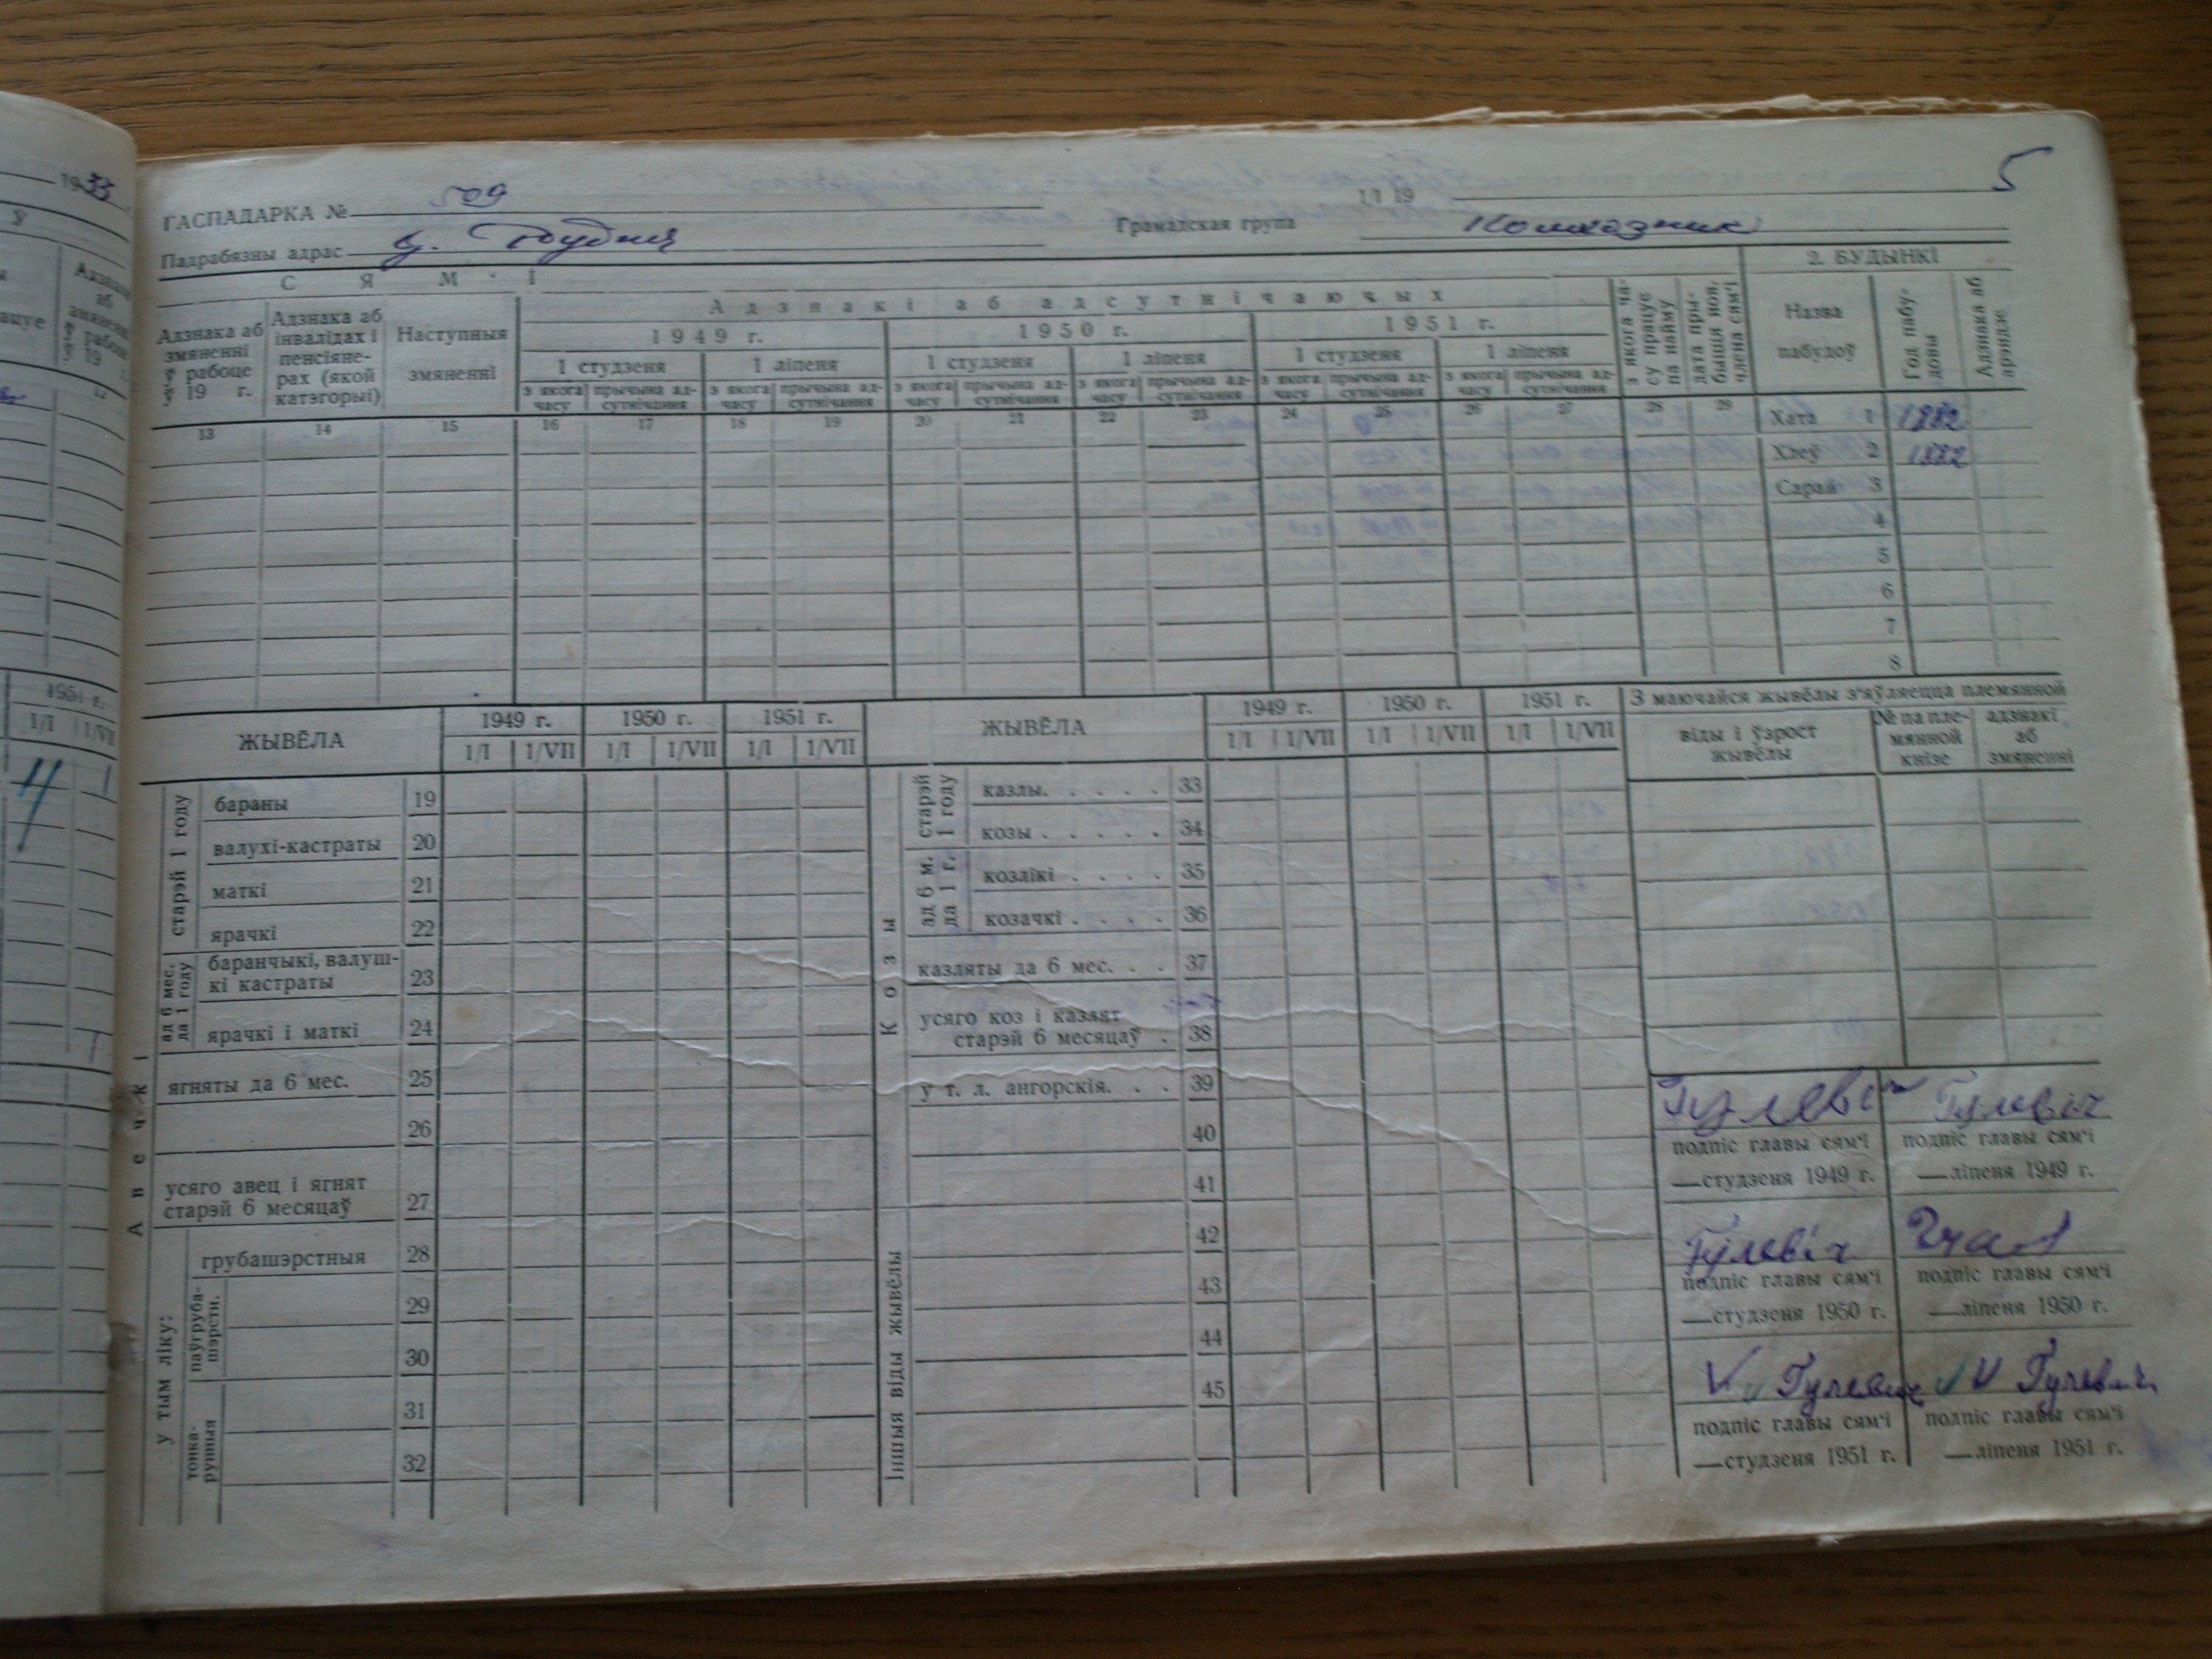 1933
5
ГАСПАДАРКА № 509
1/I 19
Падрабязны адрас
Грамадская група Колхозник
С Я М ' І
2. БУДЫНКІ
Адзнака аб змяненні ў рабоце ў 19 г.
Адзнака аб інвалідах і пенсіяне-рах (якой катэгорыі)
Наступныя змяненні
Адзнакі аб адсутнічаючых
1949 г.
1950 г.
1951 г.
1 студзеня
1 ліпеня
1 студзеня
1 ліпеня
1 студзеня
1 ліпеня
з якога часу
прычына ад-сутнічання
з якога часу
прычына ад-сутнічання
з якога часу
прычына ад-сутнічання
з якога часу
прычына ад-сутнічання
з якога часу
прычына ад-сутнічання
з якога часу
прычына ад-сутнічання
з якога ча-су працуе па найму
дата пры-быцця нов. члена сям'і
Назва пабудоў
Год пабу-довы
Адзнака аб арэндзе
13 14 15 16 17 18 19 20 21 22 23 24 25 26 27 28 29
Хата 1 1882
Хлеў 2 1882
Сарай 3
4
5
6
7
8
ЖЫВЁЛА
1949 г. 1950 г. 1951 г.
1/I 1/VII 1/I 1/VII 1/I 1/VII
Авечкі
старэй 1 году
бараны 19
валухі-кастраты 20
маткі 21
ярачкі 22
ад 6 мес. да 1 году
баранчыкі, валуш-
кі кастраты 23
ярачкі і маткі 24
ягняты да 6 мес. 25
26
усяго авец і ягнят
старэй 6 месяцаў 27
у тым ліку:
грубашэрстныя 28
паўгруба-шэрстн.
29
30
тонка-рунныя
31
32
ЖЫВЁЛА
1949 г. 1950 г. 1951 г.
1/I 1/VII 1/I 1/VII 1/I 1/VII
Козы
старэй 1 году
казлы. . . . . 33
козы . . . . . 34
ад 6 м. да 1 г.
козлікі . . . . 35
козачкі . . . . 36
казляты да 6 мес. . . 37
усяго коз і казлят
старэй 6 месяцаў . 38
у т. л. ангорскія. . . 39
40
41
Іншыя віды жывёлы
42
43
44
45
З маючайся жывёлы з'яўляецца племянной
віды і ўзрост жывёлы
№ па пле-мянной кнізе
адзнакі аб змяненні
Гулевіч Гулевіч
подпіс главы сям'і подпіс главы сям'і
—студзеня 1949 г. —ліпеня 1949 г.
Гулевіч
подпіс главы сям'і подпіс главы сям'і
—студзеня 1950 г. —ліпеня 1950 г.
Гулевич Гулевич
подпіс главы сям'і подпіс главы сям'і
—студзеня 1951 г. —ліпеня 1951 г.
1951 г.
1/I 1/VII